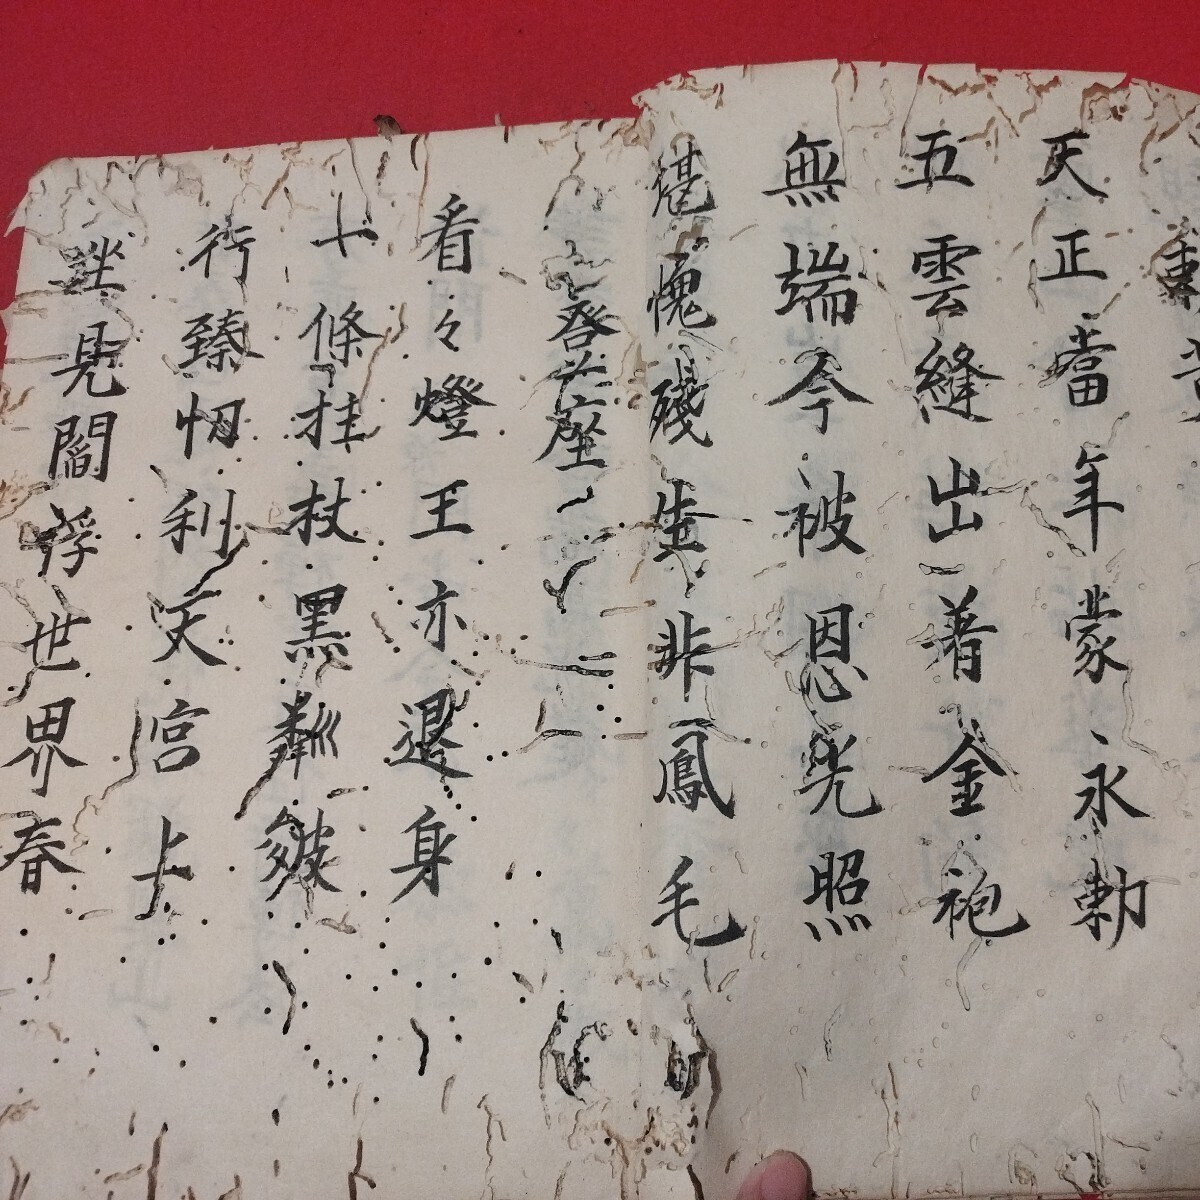 勅黄
天正當年蒙永勅
五雲縫出著金袍
無端今被恩光照
堪愧殘生非鳳毛
登座
看々燈王亦退身
一條拄杖黒粼皴
行臻忉利天宮上
坐見閻浮世界春